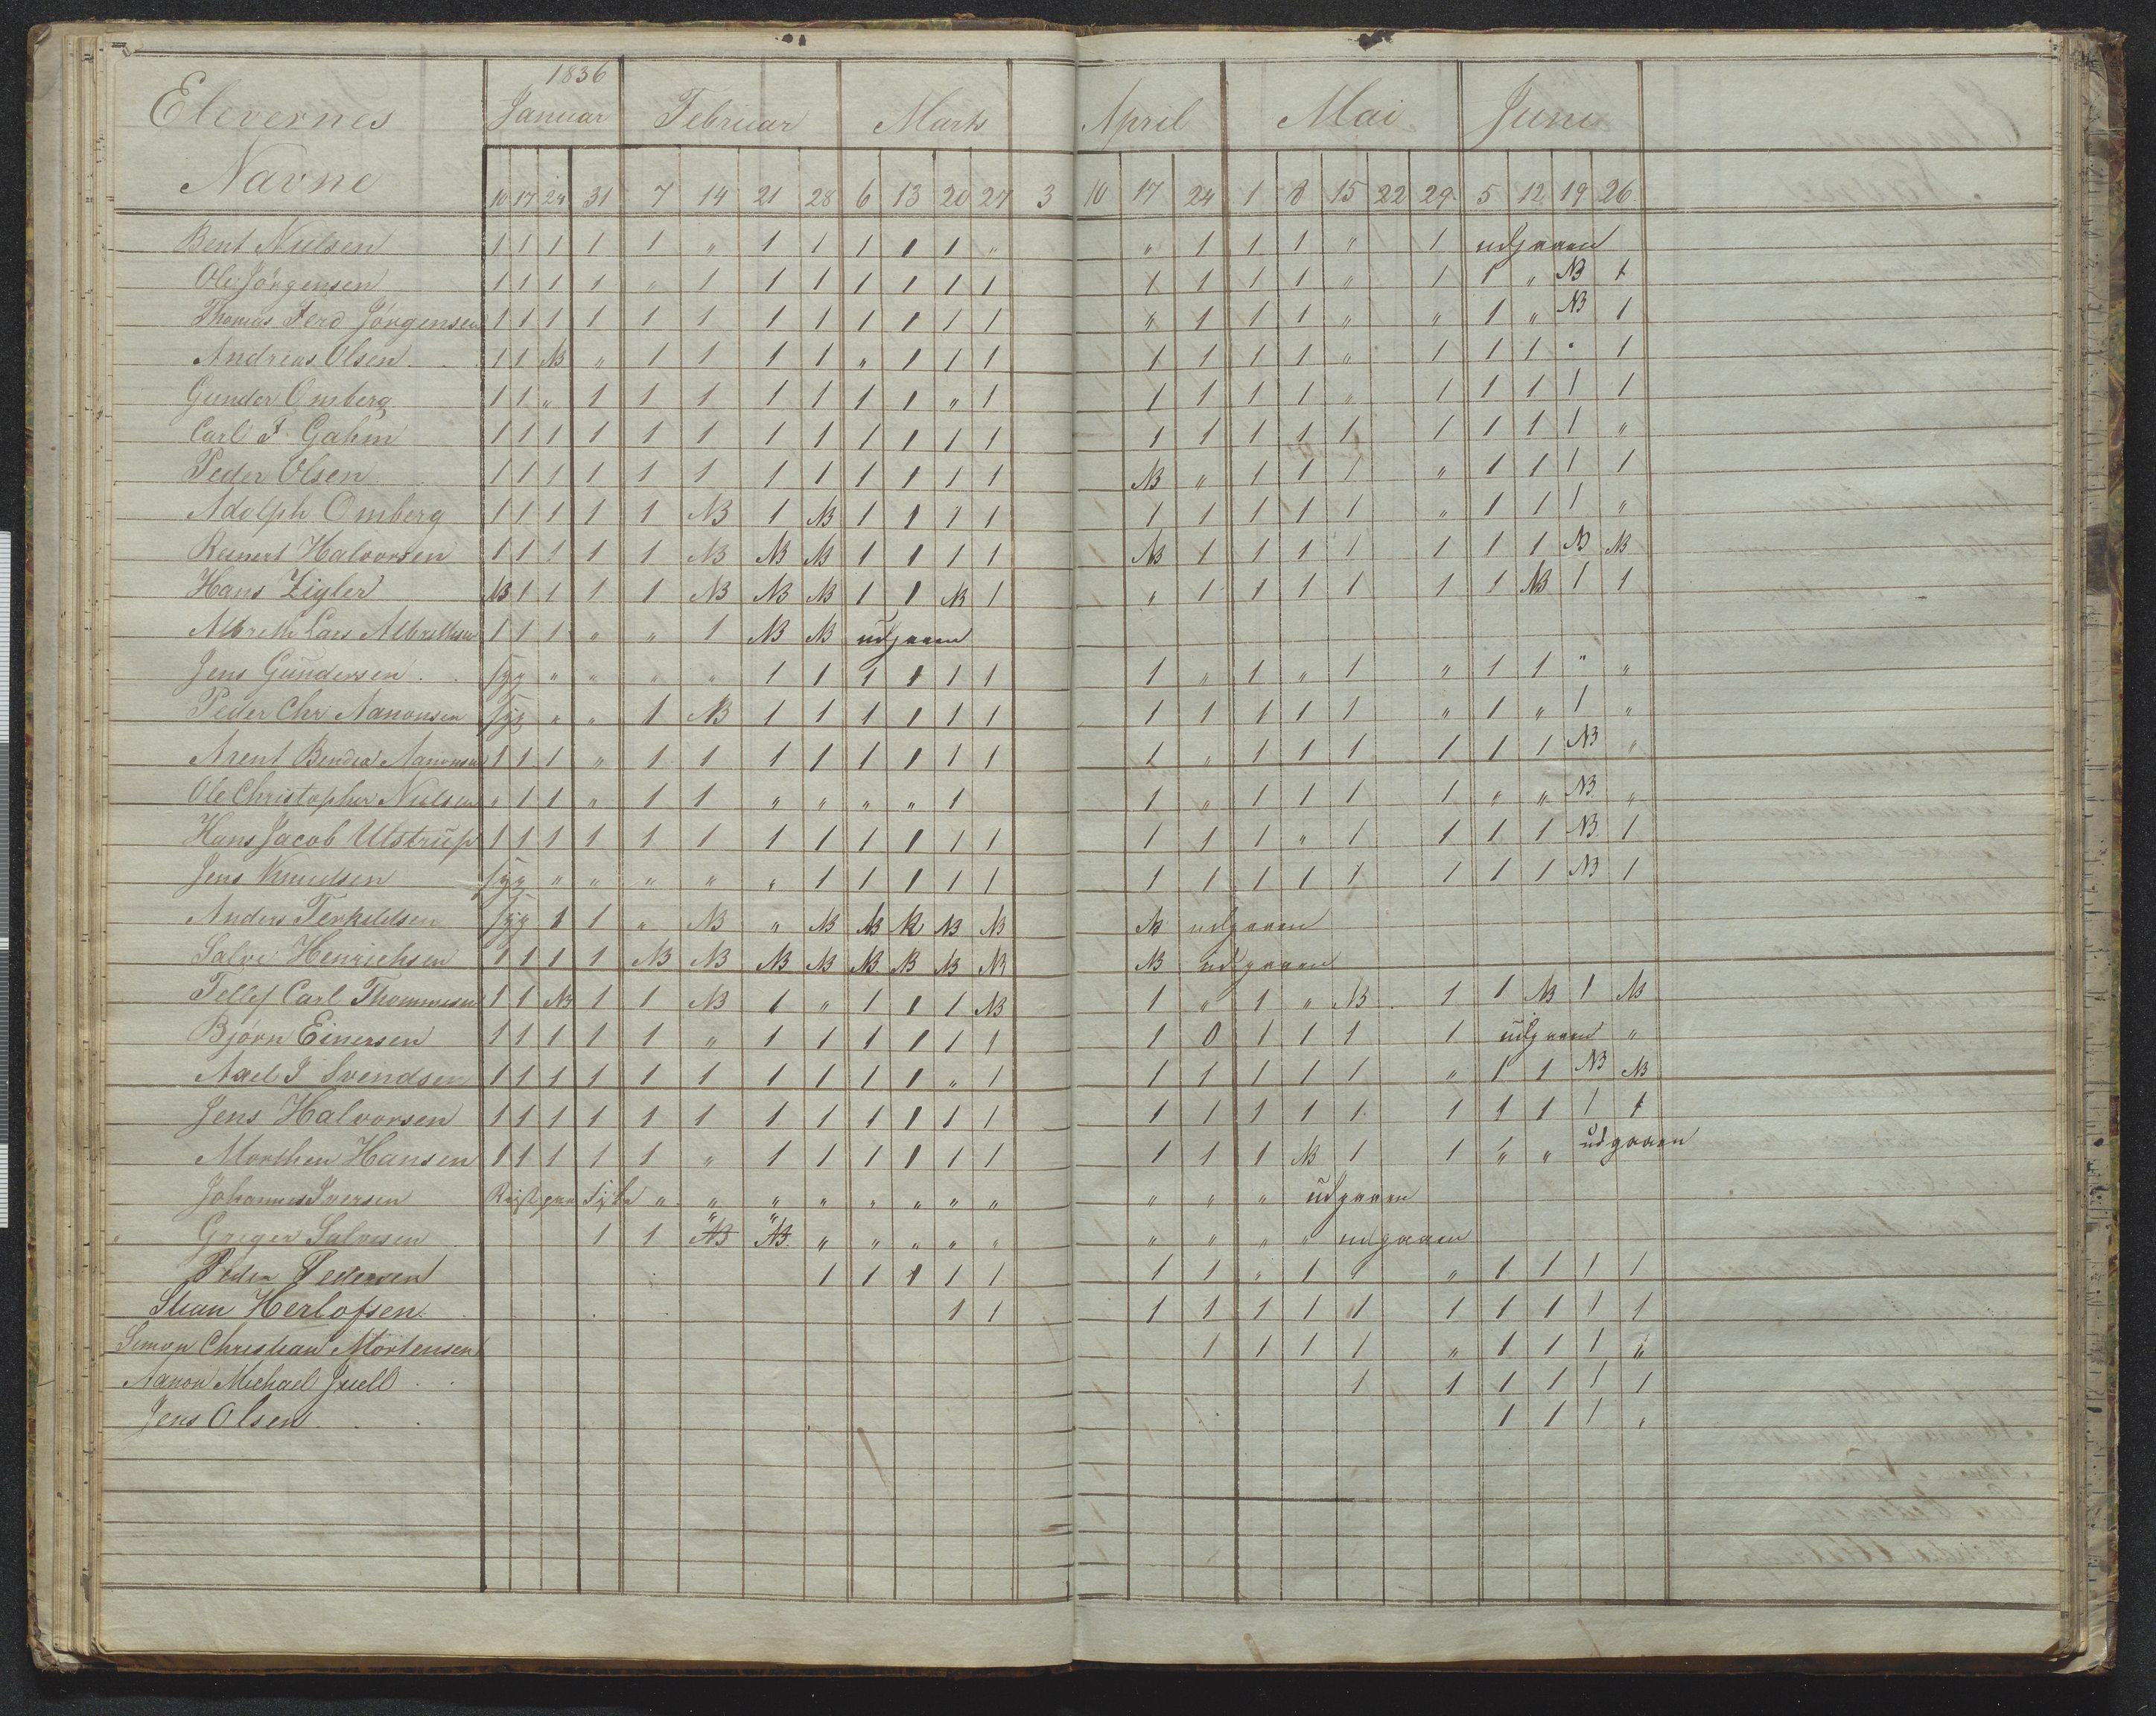 1836
Elevernes Januar Februar Marts April Mai Juni
Navne 10 17 24 31 7 14 21 28 6 13 20 27 3 10 17 24 1 8 15 22 29 5 12 19 26
Bent Nielsen 1 1 1 1 1 " 1 1 1 1 1 " " 1 1 1 " 1 udgaaen
Ole Jörgensen 1 1 1 1 " 1 1 1 1 1 1 1 1 1 1 1 " 1 1 " NB 1
Thomas Ferd Jörgensen 1 1 1 1 1 1 1 1 1 1 1 1 " 1 1 1 " " 1 " NB 1
Andreas Olsen 1 1 NB " 1 1 1 1 " 1 1 1 1 1 1 1 " 1 1 1 " 1
Gunder Omberg 1 1 " 1 1 1 1 1 1 1 " 1 1 1 1 1 " 1 1 1 1 1
Carl F. Gahm 1 1 1 1 1 1 1 1 1 1 1 1 1 1 1 1 1 1 1 1 1 "
Peder Olsen 1 1 1 1 1 1 1 1 1 1 1 1 NB " 1 1 1 " 1 1 1 1
Adolph Omberg 1 1 1 1 1 NB 1 NB 1 1 1 1 1 1 1 1 1 " 1 1 1 "
Reinert Halvorsen 1 1 1 1 1 NB NB NB 1 1 1 1 NB 1 1 1 1 1 1 1 NB NB
Hans Zigler NB 1 1 1 1 NB NB NB 1 1 NB 1 " 1 1 1 1 1 1 NB 1 1
Albreth Lars Albrethsen 1 1 1 " " 1 NB NB udgaaen
Jens Gundersen syg " " " " 1 1 1 1 1 1 1 " 1 " 1 " 1 1 " "
Peder Chr Aanonsen syg " " 1 NB 1 1 1 1 1 1 1 1 1 1 1 " 1 " 1 "
Arent Bendix Aanonsen 1 1 1 " 1 1 1 1 1 1 1 1 1 " 1 1 1 1 1 1 NB "
Ole Christopher Nielsen " 1 1 " 1 1 " " " " 1 1 " 1 1 1 1 " " NB "
Hans Jacob Ulstrup 1 1 1 1 1 1 1 1 1 1 1 1 1 1 1 " 1 1 1 1 NB 1
Jens Knudsen syg " " " " " 1 1 1 1 1 1 1 1 1 1 1 1 1 NB 1
Anders Terkeldsen syg 1 1 " NB " NB NB NB NB NB NB udgaaen
Salve Henrichsen 1 1 1 1 NB NB NB NB NB NB NB NB NB udgaaen
Tellef Carl Thommesen 1 1 NB 1 1 NB 1 " 1 1 1 NB 1 " 1 " NB 1 1 NB 1 NB
Björn Einersen 1 1 1 1 1 " 1 1 1 1 1 1 1 0 1 1 1 1 udgaaen "
Axel J Svendsen 1 1 1 1 1 1 1 1 1 1 " 1 1 1 1 1 1 " 1 1 NB NB
Jens Halvorsen 1 1 1 1 1 1 1 1 1 1 1 1 1 1 1 1 1 1 1 1 1 1
Morthen Hansen 1 1 1 1 1 " 1 1 1 1 1 1 1 1 1 NB 1 1 " " udgaaen
Johannes Iversen " " " " " " " " " " " udgaaen
Greger Salvesen 1 1 NB NB " " " " " " " " " udgaaen
Peder Pedersen 1 1 1 1 1 1 1 " 1 1 " 1 1 1 1
Stian Herlofsen 1 1 1 1 1 1 1 1 1 1 1 1
Simon Christian Mortensen 1 1 1 1 " 1 1 1 "
Aanon Michael Juell 1 1 1 1 1 1
Jens Olsen 1 1 1 "